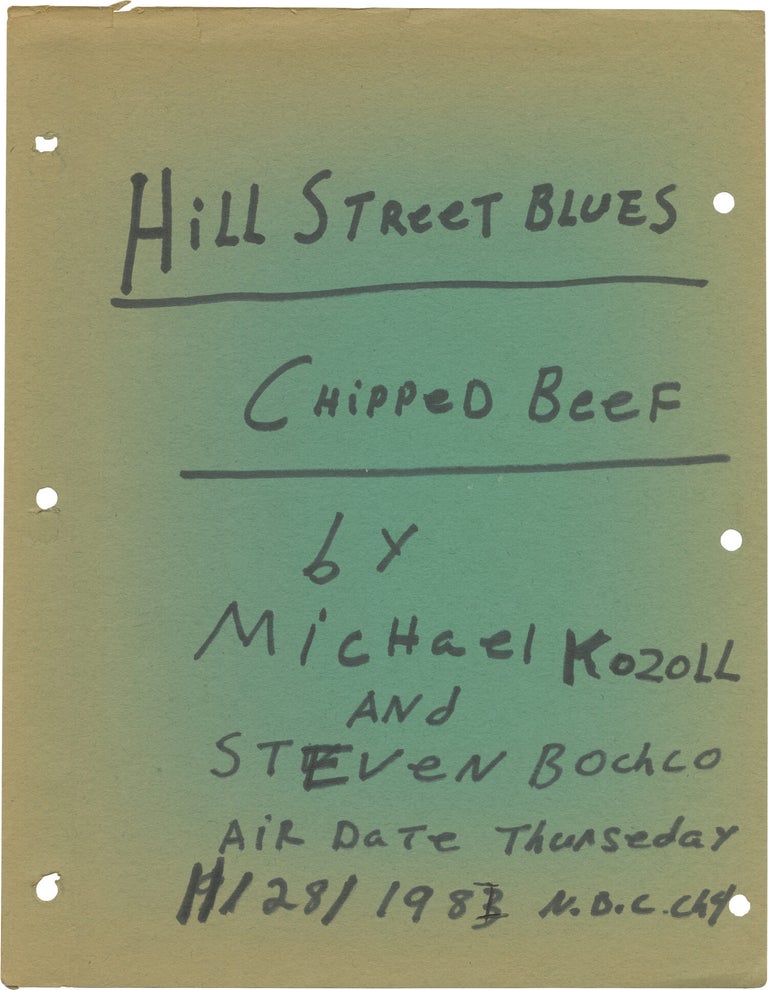 Hill Street Blues
Chipped Beef
by
Michael Kozoll
And
Steven Bochco
Air Date Thurseday
/28/1983 N.B.C. Ch4